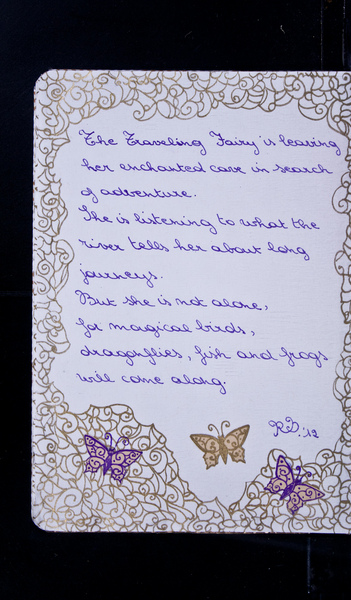 The Traveling Fairy is leaving
her enchanted cave in search
of adventure.
She is listening to what the
river tells her about long
journeys.
But she is not alone,
for magical birds,
dragonflies, fish and frogs
will come along.